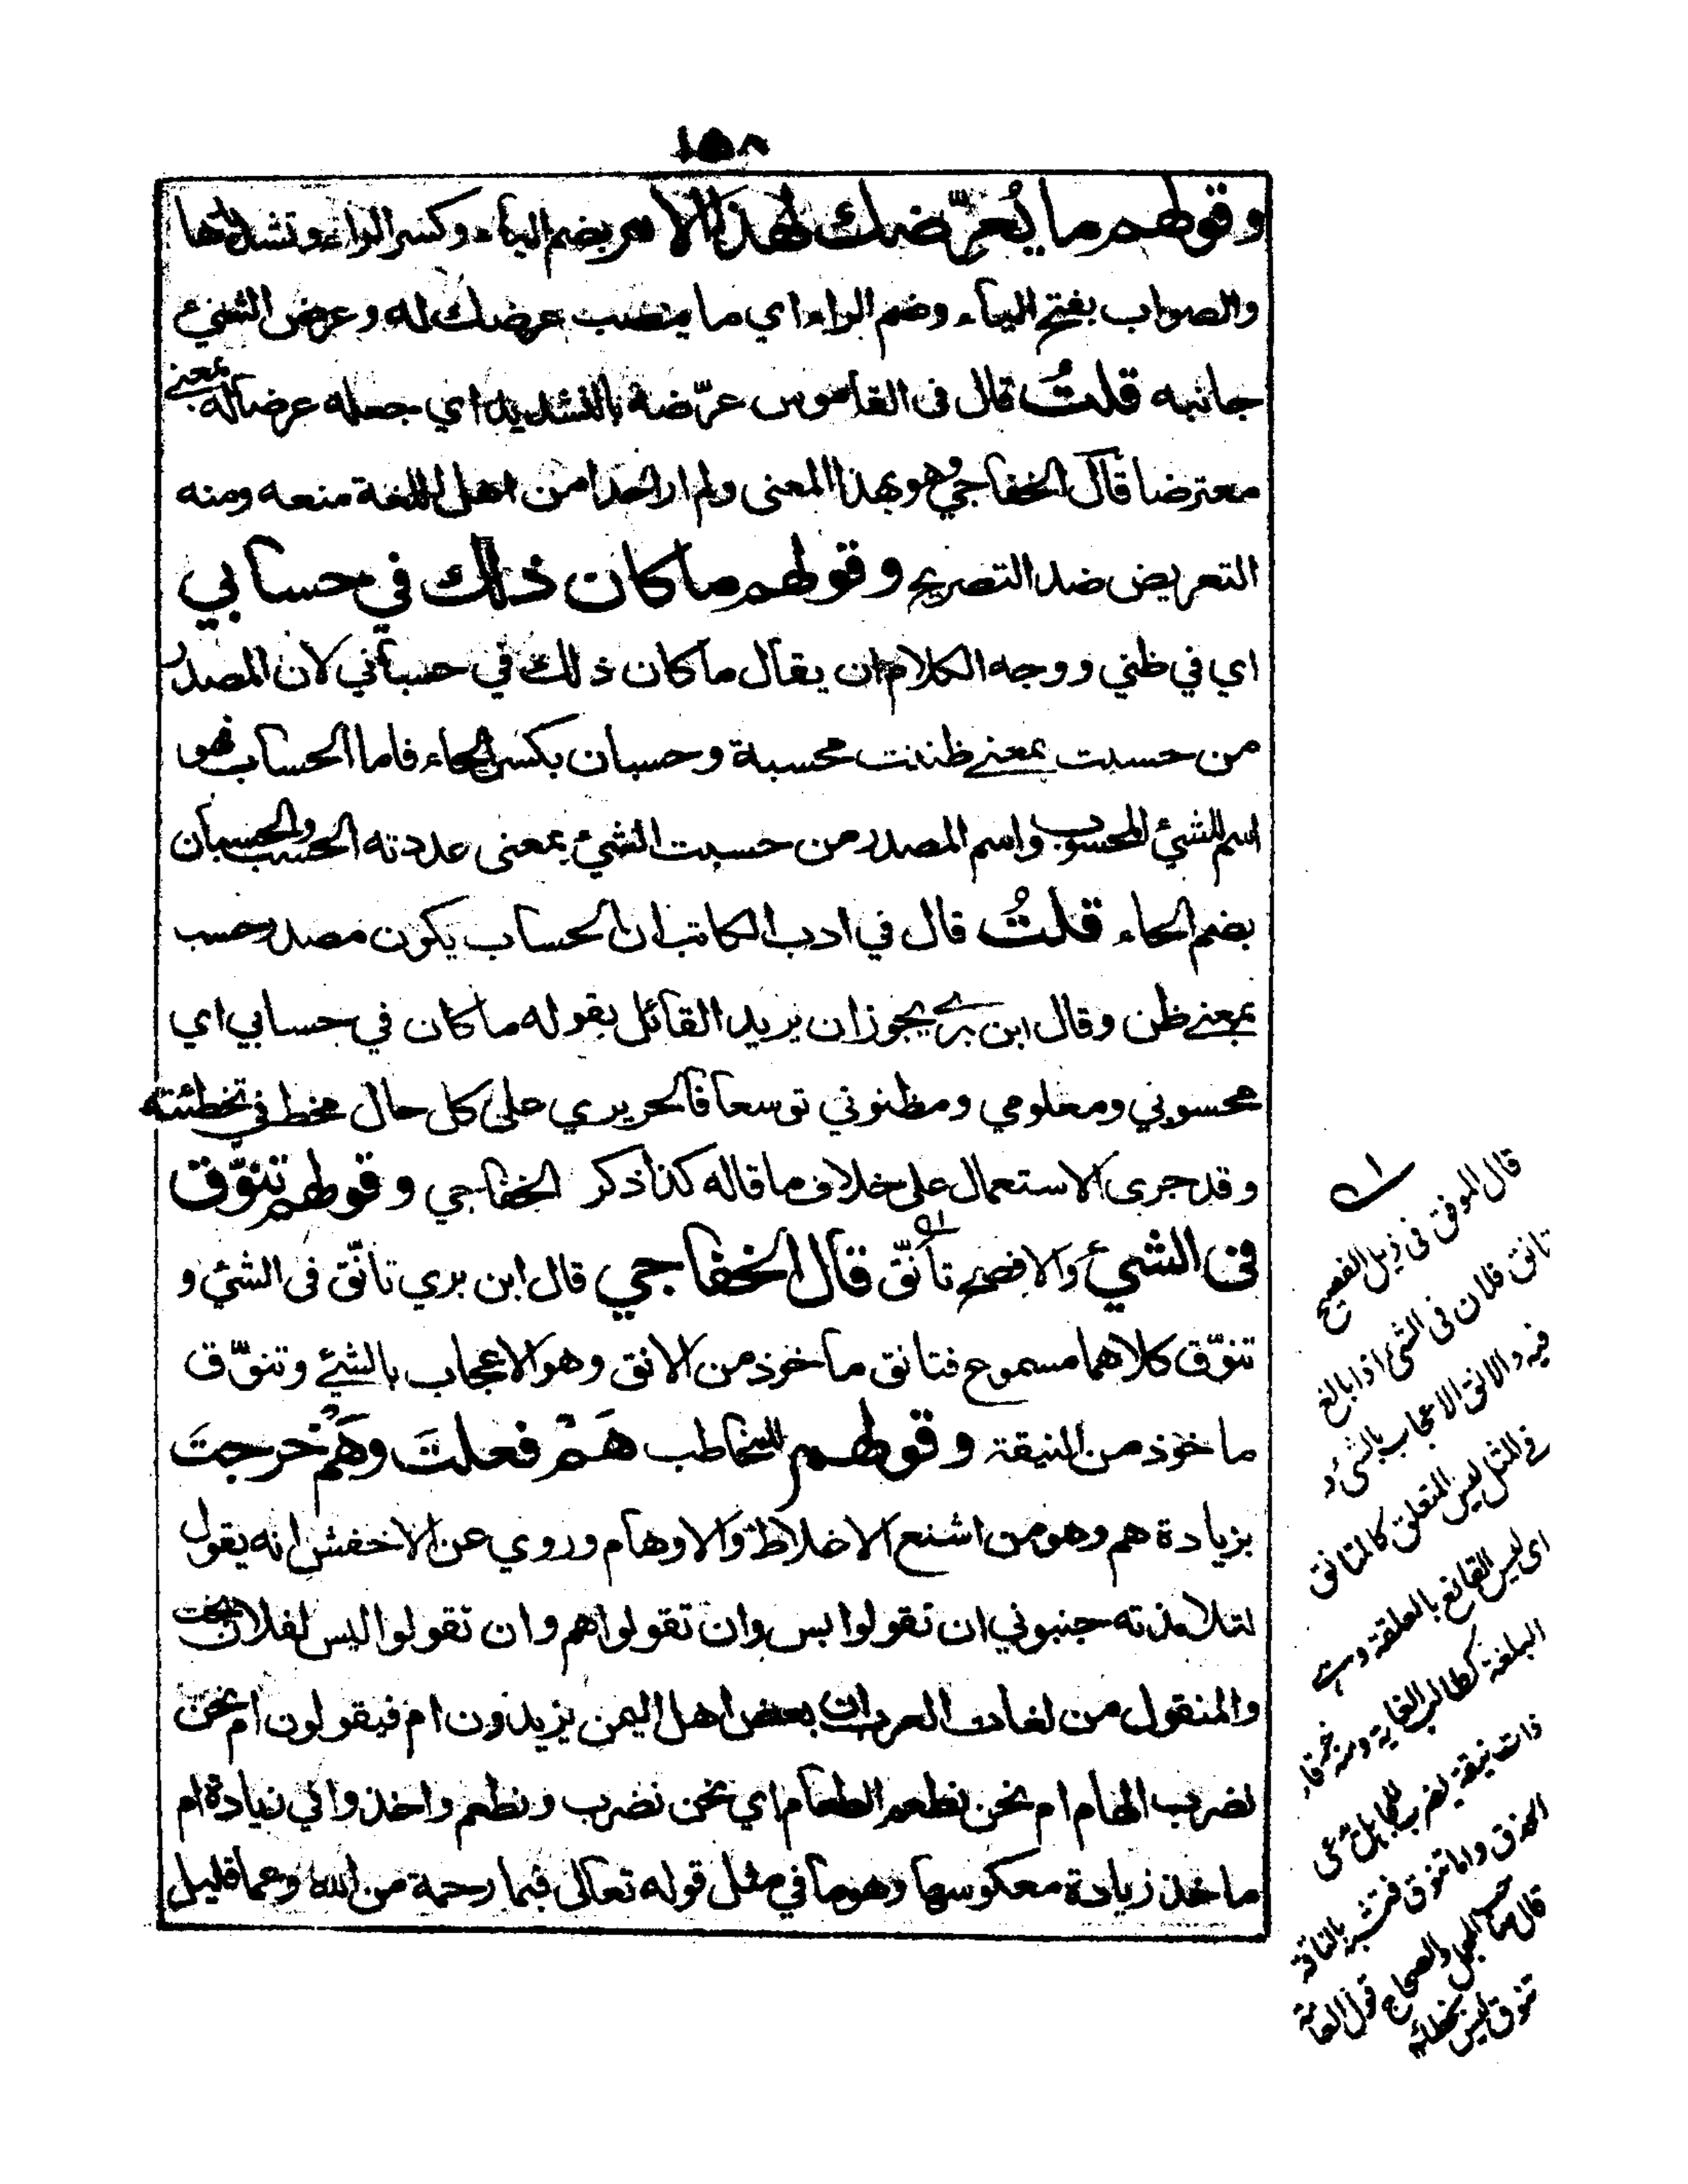 ١٥٨
وقولهم ما يُعرّضك لهذا الامر بضم الياء وكسر الراء وتشديدها
والصواب بفتح الياء وضم الراء اي ما ينصب عرضك له وعرض الشئ
جانبه قلتُ قال فى القاموس عرّضه بالتشديد اي جعله عرضا له بمعنے
معترضا قال الخفاجي وهو بهذا المعنى ولم ار احدا من اهل اللغة منعه ومنه
التعريض ضد التصريح وقولهم ما كان ذلك في حسابي
اي في ظني ووجه الكلام ان يقال ما كان ذلك في حسباني لان المصدر
من حسبت بمعنے ظننت محسبة وحسبان بكسر الحاء فاما الحساب فهو
اسم للشئ المحسوب واسم المصدر من حسبت الشئ بمعنى عددته الحسب والحسبان
بضم الحاء قلتُ قال في ادب الكاتب ان الحساب يكون مصدر حسب
بمعنے ظن وقال ابن برے يجوز ان يريد القائل بقوله ما كان في حسابي اي
محسوبي ومعلومي ومظنوني توسعا فالحريري على كل حال مخط في تخطئته
وقد جرى الاستعمال على خلاف ما قاله كذا ذكر الخفاجي وقولهم تنوّق
فى الشيئ والافصح تأنّق قال الخفاجي قال ابن بري تأنّق فى الشئ و
تنوّق كلاهما مسموع فتانق ماخوذ من الانق وهو الاعجاب بالشئے وتنوّق
ماخوذ من النيقة وقولهم للمخاطب هَمْ فعلتَ وهَمْ خرجتَ
بزيادة هم وهو من اشنع الاغلاط والاوهام وروي عن الاخفش انه يقول
لتلامذته جنبوني ان تقولوا بس وان تقولوا هم وان تقولوا ليس لفلان بخت
والمنقول من لغات العرب ان بعض اهل اليمن يزيدون ام فيقولون ام نحن
نضرب الهام ام نحن نطعم الطعام اي نحن نضرب ونطعم واخذوا في زيادة ام
ماخذ زيادة معكوسها وهو ما في مثل قوله تعالى فبما رحمة من الله وعما قليل
قال الموفق فى ذيل الفصيح
تانق فلان فى الشئ اذا بالغ
فيه والانق الاعجاب بالشئ و
فے المثل ليس المتعلق كالمتانق
اى ليس القانع بالعلقة وهے
البلغة كطالب الغاية ومنه خرقاء
ذات نيقة يضرب للجاهل يدعى
الحذق واما تنوق فمشبه بالناقة
قال صاحب المجمل والصحاح قول العامة
تنوق ليس بخطاء